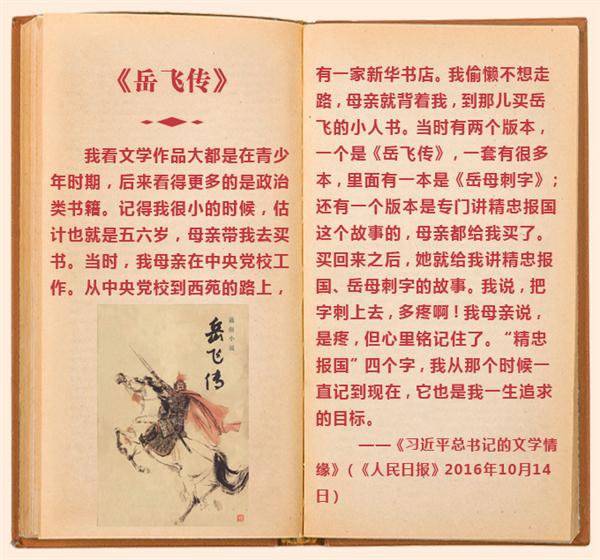 《岳飞传》
我看文学作品大都是在青少
年时期，后来看得更多的是政治
类书籍。记得我很小的时候，估
计也就是五六岁，母亲带我去买
书。当时，我母亲在中央党校工
作。从中央党校到西苑的路上，
通俗小说
岳飞传
有一家新华书店。我偷懒不想走
路，母亲就背着我，到那儿买岳
飞的小人书。当时有两个版本，
一个是《岳飞传》，一套有很多
本，里面有一本是《岳母刺字》；
还有一个版本是专门讲精忠报国
这个故事的，母亲都给我买了。
买回来之后，她就给我讲精忠报
国、岳母刺字的故事。我说，把
字刺上去，多疼啊！我母亲说，
是疼，但心里铭记住了。“精忠
报国”四个字，我从那个时候一
直记到现在，它也是我一生追求
的目标。
——《习近平总书记的文学情
缘》(《人民日报》2016年10月14
日)